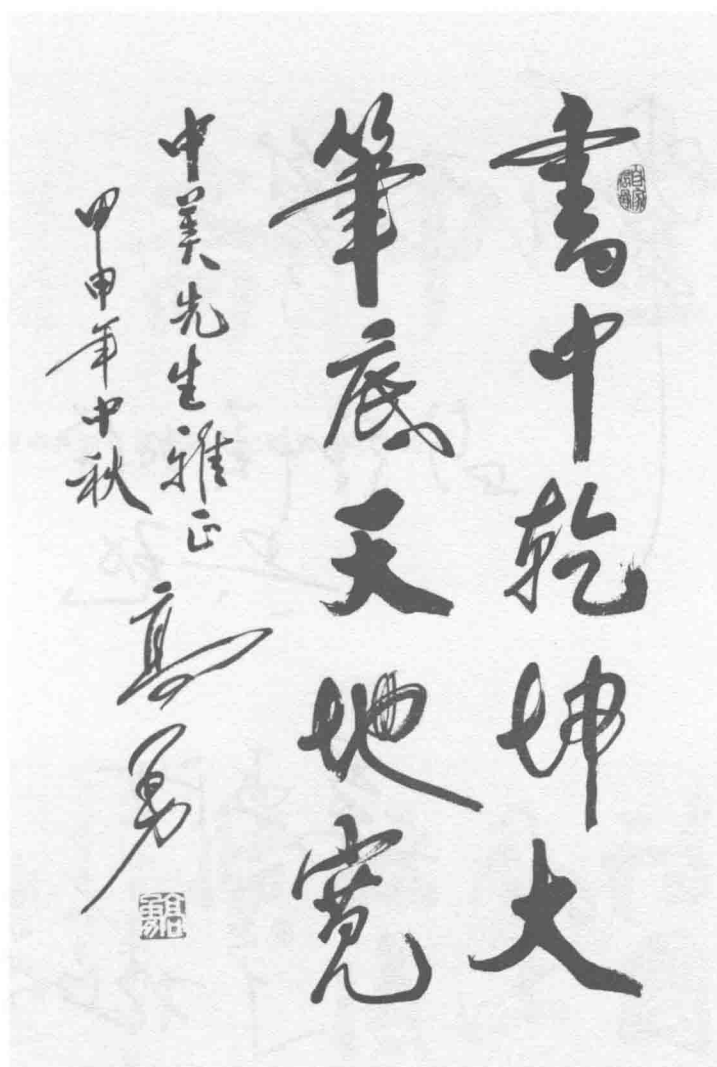 書中乾坤大
筆底天地寬
中美先生雅正
甲申年中秋
高勇
高勇